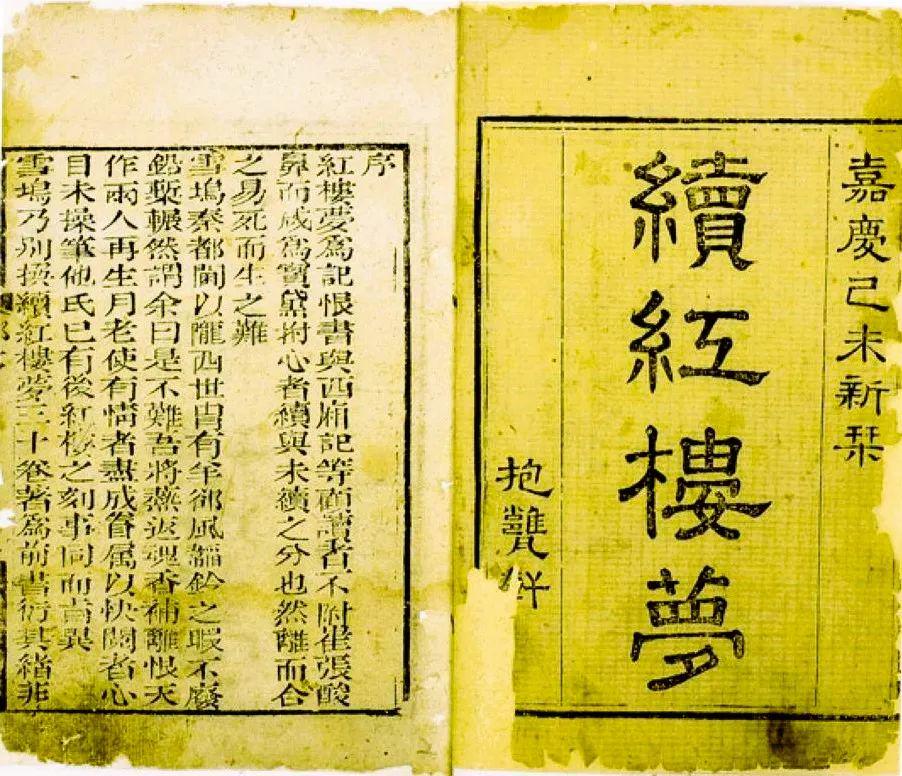 嘉慶己未新栞
續紅樓夢
抱甕軒
序
紅樓夢為記恨書與西廂記等顧讀者不附崔張酸
鼻而咸為寶黛拊心者續與未續之分也然離而合
之易死而生之難
雪塢秦都閫以隴西世冑有羊郤風韜鈐之暇不廢
鉛槧輾然謂余曰是不難吾將燕返魂香補離恨天
作兩人再生月老使有情者盡成眷屬以快閱者心
目未操筆他氏已有後紅樓之刻事同而旨異
雪塢乃別撰續紅樓夢三十卷著為前書衍其緒非